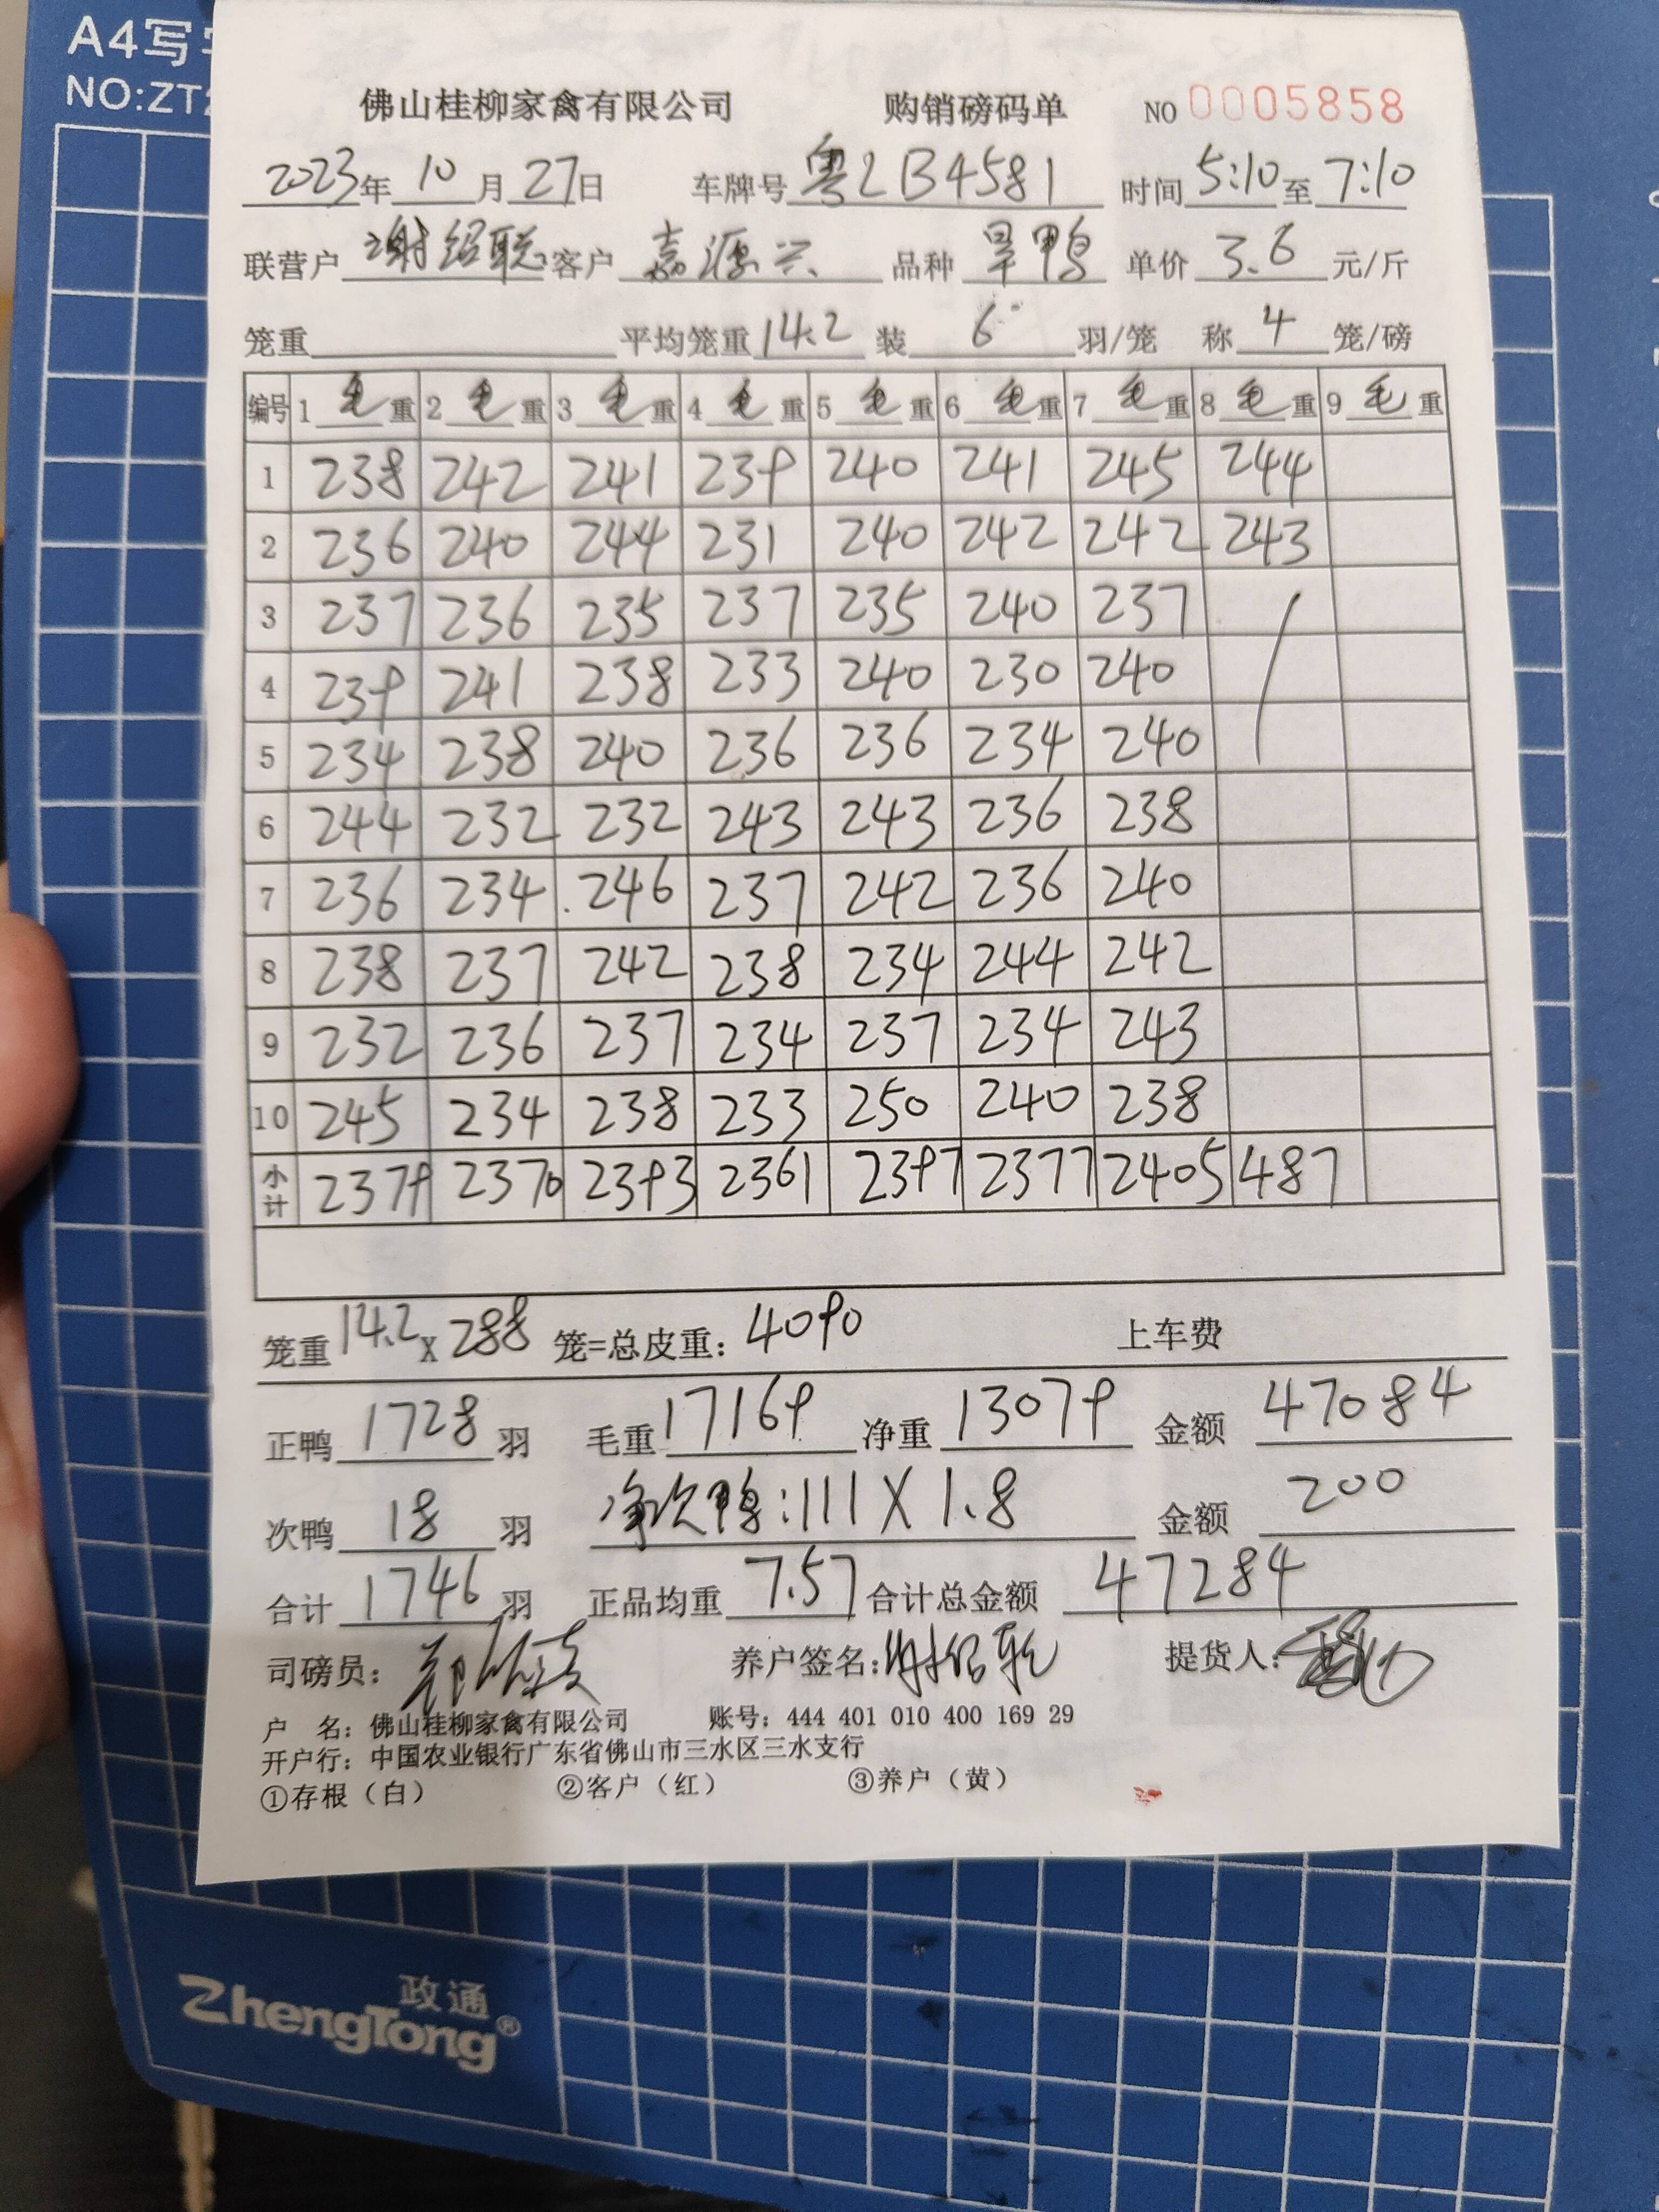 A4写字
NO:ZT2
佛山桂柳家禽有限公司 购销磅码单 NO 0005858
2023年 10月 27日 车牌号 粤L B4581 时间 5:10 至 7:10
联营户 谢绍联 客户 嘉源兴 品种 旱鸭 单价 3.6 元/斤
笼重 平均笼重 14.2 装 6 羽/笼 称 4 笼/磅
编号 1 毛重 2 毛重 3 毛重 4 毛重 5 毛重 6 毛重 7 毛重 8 毛重 9 毛重
1 238 242 241 239 240 241 245 244
2 236 240 244 231 240 242 242 243
3 237 236 235 237 235 240 237
4 239 241 238 233 240 230 240
5 234 238 240 236 236 234 240
6 244 232 232 243 243 236 238
7 236 234 246 237 242 236 240
8 238 237 242 238 234 244 242
9 232 236 237 234 237 234 243
10 245 234 238 233 250 240 238
小计 2379 2370 2393 2361 2397 2377 2405 487
笼重 14.2 X 288 笼=总皮重: 4090 上车费
正鸭 1728 羽 毛重 17169 净重 13079 金额 47084
次鸭 18 羽 净次鸭:111 X 1.8 金额 200
合计 1746 羽 正品均重 7.57 合计总金额 47284
司磅员: 养户签名: 提货人:
户 名: 佛山桂柳家禽有限公司 账号: 444 401 010 400 169 29
开户行: 中国农业银行广东省佛山市三水区三水支行
①存根（白） ②客户（红） ③养户（黄）
政通
ZhengTong®